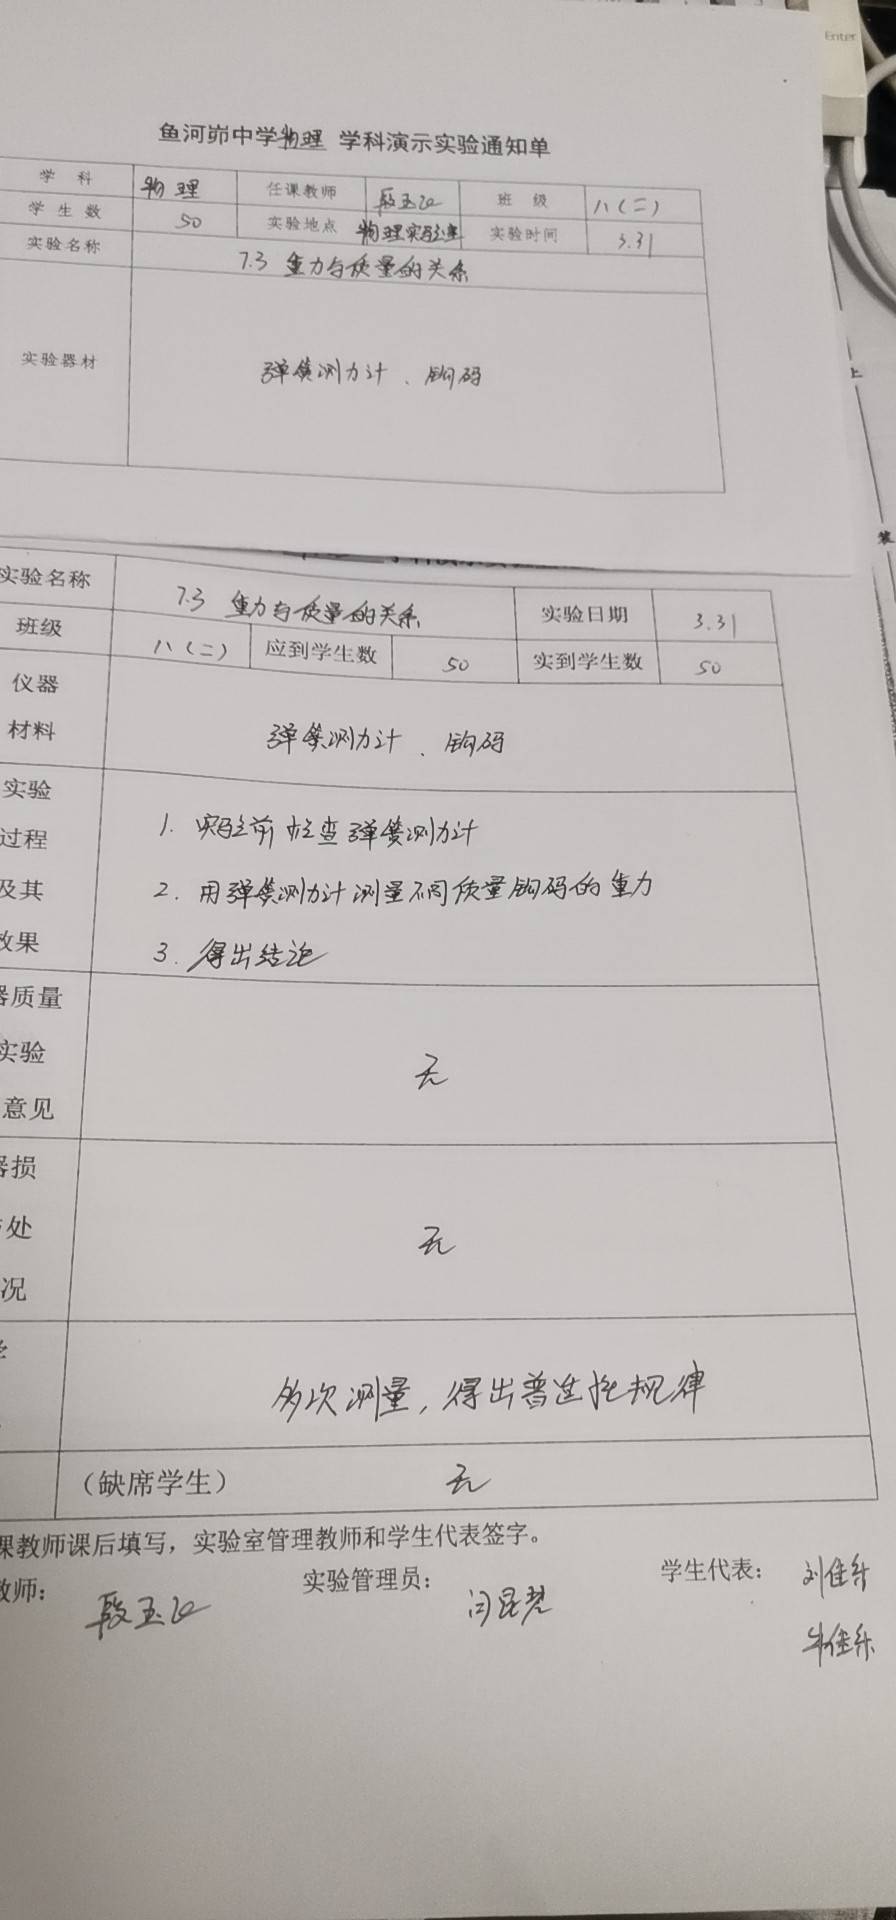 Enter
鱼河峁中学物理 学科演示实验通知单
学 科 物理 任课教师 班 级 八(二)
学 生 数 50 实验地点 物理实验室 实验时间 3.31
实验名称 7.3 重力与质量的关系
实验器材 弹簧测力计、钩码
上
装
实验名称 7.3 重力与质量的关系 实验日期 3.31
班级 八(二) 应到学生数 50 实到学生数 50
仪器
材料 弹簧测力计、钩码
实验
过程 1. 实验前检查弹簧测力计
及其 2. 用弹簧测力计测量不同质量钩码的重力
效果 3. 得出结论
器质量
实验 无
意见
器损
处 无
况
多次测量,得出普遍性规律
(缺席学生) 无
课教师课后填写,实验室管理教师和学生代表签字。
教师: 实验管理员: 学生代表: